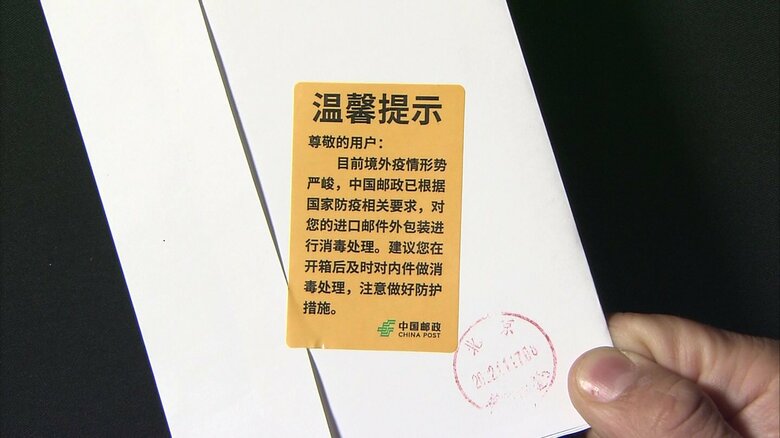 温馨提示
尊敬的用户：
目前境外疫情形势
严峻，中国邮政已根据
国家防疫相关要求，对
您的进口邮件外包装进
行消毒处理。建议您在
开箱后及时对内件做消
毒处理，注意做好防护
措施。
中国邮政
CHINA POST
北京